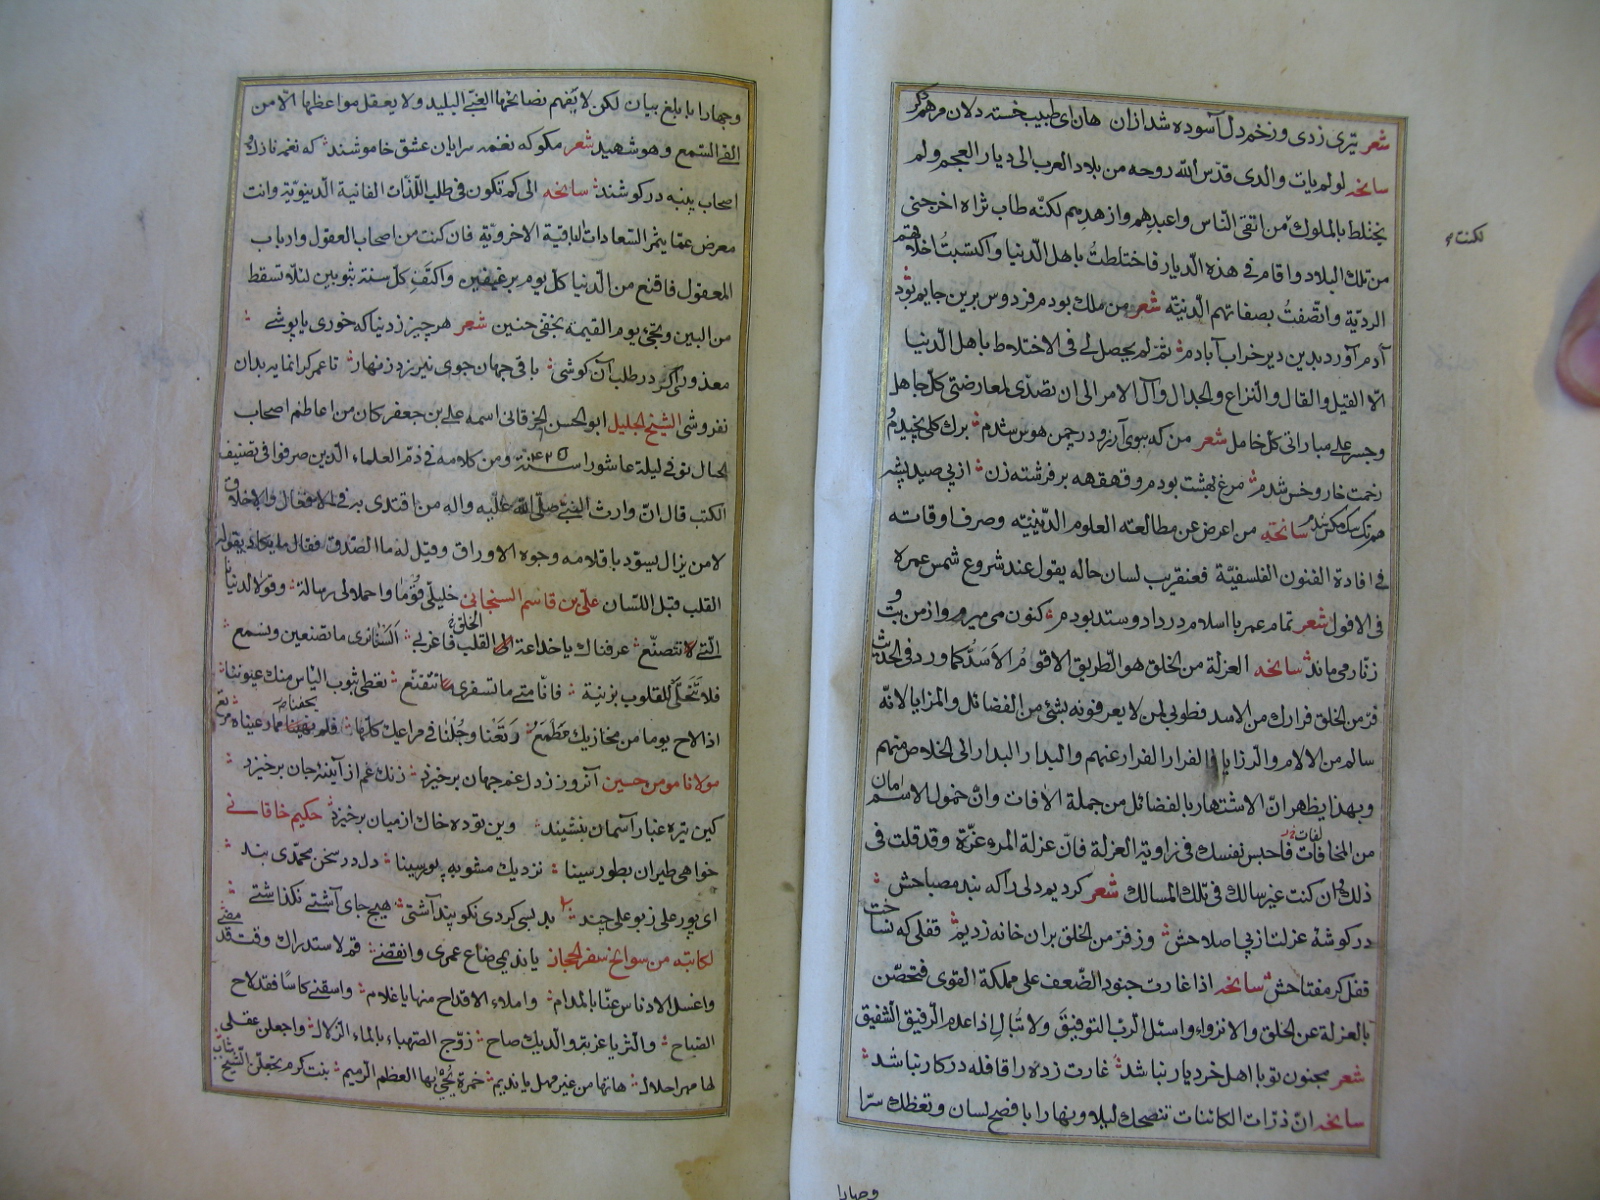 شعر تیری زدی و زخم دل آسوده شد ازان هان ای طبیب خسته دلان مرهم دگر
سانحه لو لم یات والدی قدّس الله روحه من بلاد العرب الی دیار العجم ولم
یختلط بالملوک لکنت من اتقی النّاس واعبدهم وازهدهم لکنّه طاب ثراه اخرجنی
من تلک البلاد واقام فی هذه الدّیار فاختلطتُ باهل الدّنیا واکتسبتُ اخلاقهم
الردیّة واتّصفتُ بصفاتهم الدّنیّة شعر من ملک بودم وفردوس برین جایم بود
آدم آورد بدین دیر خراب آبادم ثمّ لم یحصل لی فی الاختلاط باهل الدّنیا
الّا القیل والقال والنّزاع والجدال وآل الامر الی ان تصدّی لمعارضتی کلّ جاهل
وجسر علی مباراتی کلّ خامل شعر من که ببوی آرزو در چمن هوس شدم برک کلی نچیدم و
زخمت خار و خس شدم مرغ بهشت بودم وقهقهه بر فرشته زن از پی صید پشه
همرنک سک مکس شدم سانحة من اعرض عن مطالعته العلوم الدّینیّه وصرف اوقاته
فی افادة الفنون الفلسفیّة فعنقریب لسان حاله یقول عند شروع شمس عمره
فی الافول شعر تمام عمر با اسلام در داد و ستد بودم کنون می میرم و از من بت و
زنّار می ماند سانحه العزلة من الخلق هو الطّریق الاقوم الاسدّ کما ورد فی الحدیث
فرّ من الخلق فرارک من الاسد فطوبی لمن لا یعرفونه بشئ من الفضائل والمزایا لانّه
سالم من الالام والرّزایا فالفرار الفرار عنهم والبدار البدار الی الخلاص منهم
وبهذا یظهر انّ الاشتهار بالفضائل من جملة الافات وانّ خمول الاسم امان
من المخافات فاحبس نفسک فی زاویة العزلة فانّ عزلة المرء عزّة وقد قلت فی
ذلک وان کنت غیر سالک فی تلک المسالک شعر کردیم دلی را که نبد مصباحش
در کوشهٔ عزلت از پی اصلاحش وز فرّ من الخلق بران خانه زدیم قفلی که نساخت
قفل کر مفتاحش سانحه اذا غارت جنود الضّعف علی مملکة القوی فتحصّن
بالعزلة عن الخلق والانزواء واسئل الربّ التوفیق ولا تبال اذا عدم الرّفیق الشّفیق
شعر مجنون تو با اهل خرد یار نباشد غارت زده را قافله در کار نباشد
سانحه انّ ذرّات الکائنات تنصحک لیلا ونهارا بافصح لسان وتعظک سرّا
وجهارا
وجهارا بابلغ بیان لکن لا یفهم نصائحها الغبیّ البلید ولا یعقل مواعظها الّا من
القی السّمع وهو شهید شعر مکو که نغمه سرایان عشق خاموشند که نغمه نازک و
اصحاب پنبه در کوشند سانحه الی کم تکون فی طلب اللّذّات الفانیة الدّنیویّة وانت
معرض عمّا یثمر السّعادات الباقیة الاخرویّة فان کنت من اصحاب العقول وارباب
المعقول فاقنع من الدّنیا کلّ یوم برغیفین واکتف کلّ سنة بثوبین لئلّا تسقط
من البین وتجئ یوم القیمة بخفّی حنین شعر هر چیز ز دنیا که خوری یا پوشی
معذوری اکر در طلب آن کوشی باقی جهان جوی نیرزد زنهار تا عمر کرانمایه بدان
نفروشی الشّیخ الجلیل ابو الحسن الخرقانی اسمه علی بن جعفر کان من اعاظم اصحاب
الحال توفی لیلة عاشورا سنة ۴۲۵ ومن کلامه فی ذمّ العلماء الّذین صرفوا فی تصنیف
الکتب قال انّ وارث النّبیّ صلّی الله علیه واله من اقتدی به فی الافعال والاخلاق
لا من یزال یسوّد باقلامه وجوه الاوراق وقیل له ما الصّدق فقال ما یکاد یقوله
القلب قبل اللّسان علیّ بن قاسم السنجانی خلیلیّ قوما واحملا لی رسالة وقولا لدنیانا
الّتی تتصنّع عرفناک یا خداعة الخلق فاغربی السنا نری ما تصنعین ونسمع
فلا تتحلّی للقلوب بزینة فانّا متی ما تسفری نتقنّع نغطی بثوب الیاس منک عیوننا
اذا لاح یوما من مخازیک مطمع رتعنا وجلنا فی مراعیک کلّها فلم یهننا ممّا رعیناه مرتع
مولانا مومن حسین آنروز ز دل غم جهان برخیزد زنک غم از آیینهٔ جان برخیزد
کین تیره غبار آسمان بنشیند وین توده خاک از میان برخیزد حکیم خاقانی
خواهی طیران بطور سینا نزدیک مشو به پور سینا دل در سخن محمّدی بند
ای پور علی ز بو علی چند بد بسی کردی نکو پنداشتی هیچ جای آشتی نکذاشتی
لکاتبه من سوانح سفر الحجاز یا ندیمی ضاع عمری وانقضی قم لاستدراک وقت قد مضی
واغسل الادناس عنّا بالمدام واملاء الاقداح منها یا غلام واسقنی کاسًا فقد لاح
الصّباح والثّریا غربت والدّیک صاح زوّج الصّهباء بالماء الزّلال واجعلن عقلی
لها مهرا حلال هاتها من غیر مهل یا ندیم خمرة یحیی بها العظم الرّمیم بنت کرم تجعلنّ الشّیخ شابّ